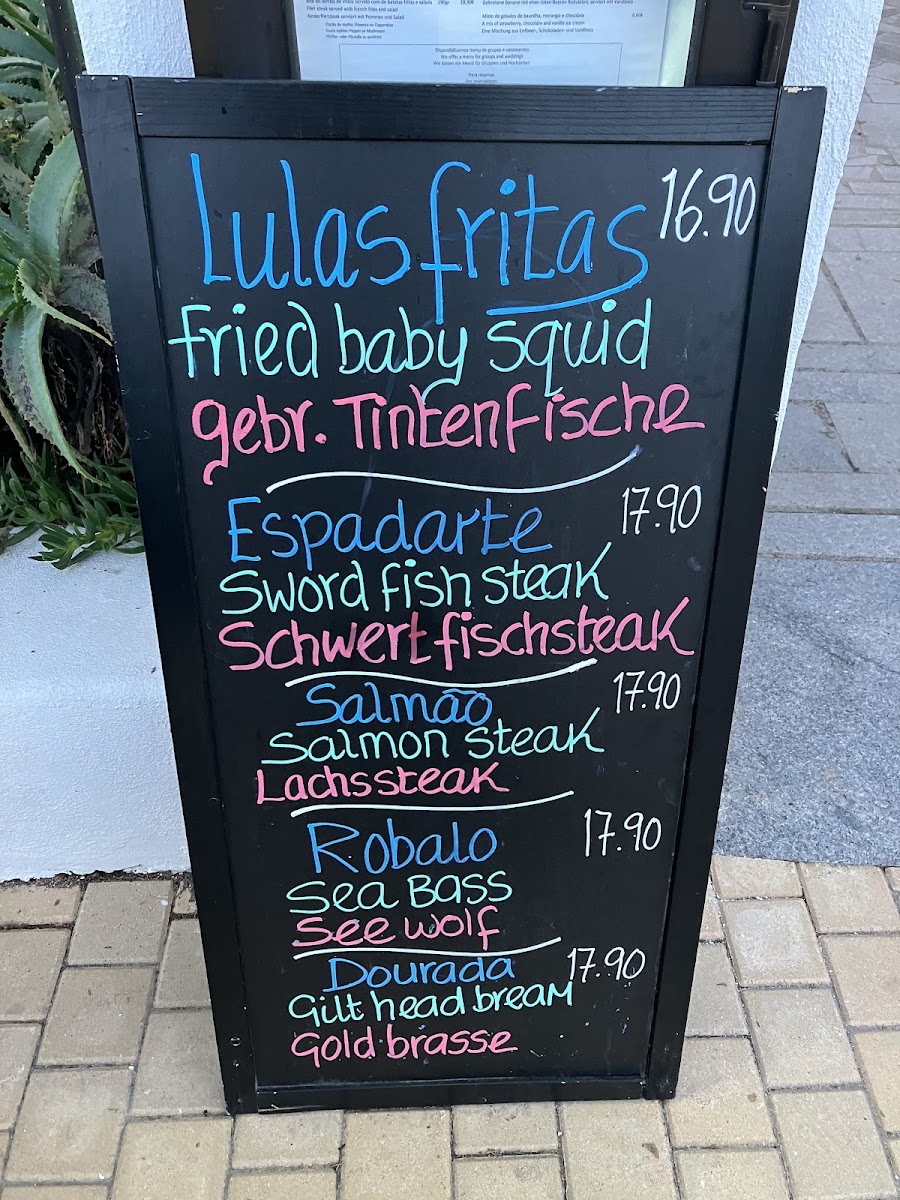 Filet steak served with french fries and salad
Rinderfiletsteak serviert mit Pommes und Salad
190gr
A mix of strawberry, chocolate and vanilla ice cream
Eine Mischung aus Erdbeer-, Schokoladen- und Vanilleeis
Disponibilizamos menu de grupos e casamentos
We offer a menu for groups and weddings
Wir bieten ein Menü für Gruppen und Hochzeiten
Para reservas
Lulas fritas 16.90
fried baby squid
gebr. Tintenfische
Espadarte 17.90
Sword fish steak
Schwertfischsteak
Salmão 17.90
Salmon steak
Lachssteak
Robalo 17.90
Sea Bass
See wolf
Dourada 17.90
Gilt head bream
Gold brasse